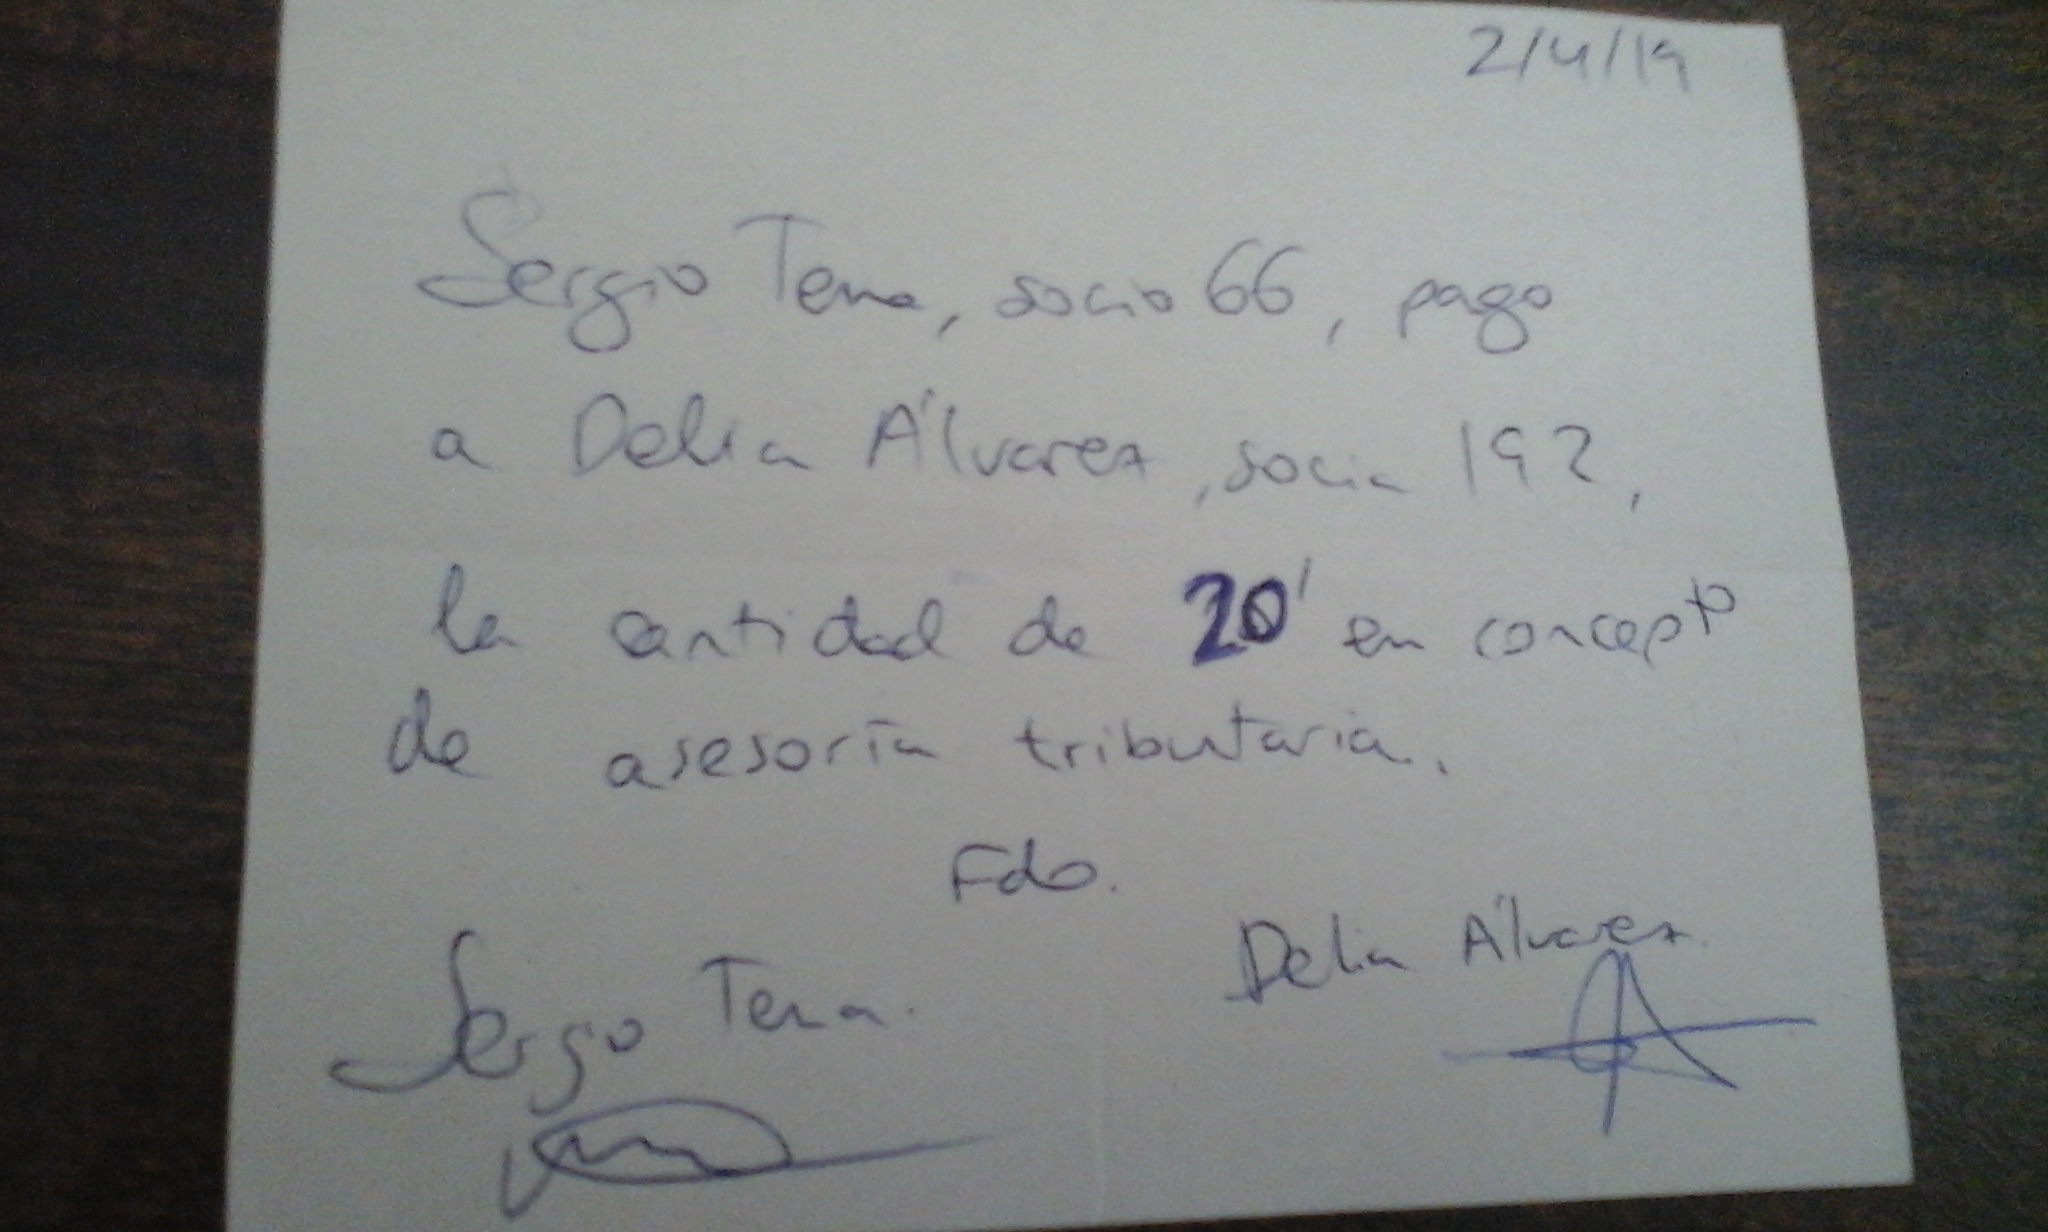 2/4/19
Sergio Tena, socio 66, pago
a Delia Álvarez, socia 192,
la cantidad de 20' en concepto
de asesoría tributaria.
Fdo.
Sergio Tena. Delia Álvarez.